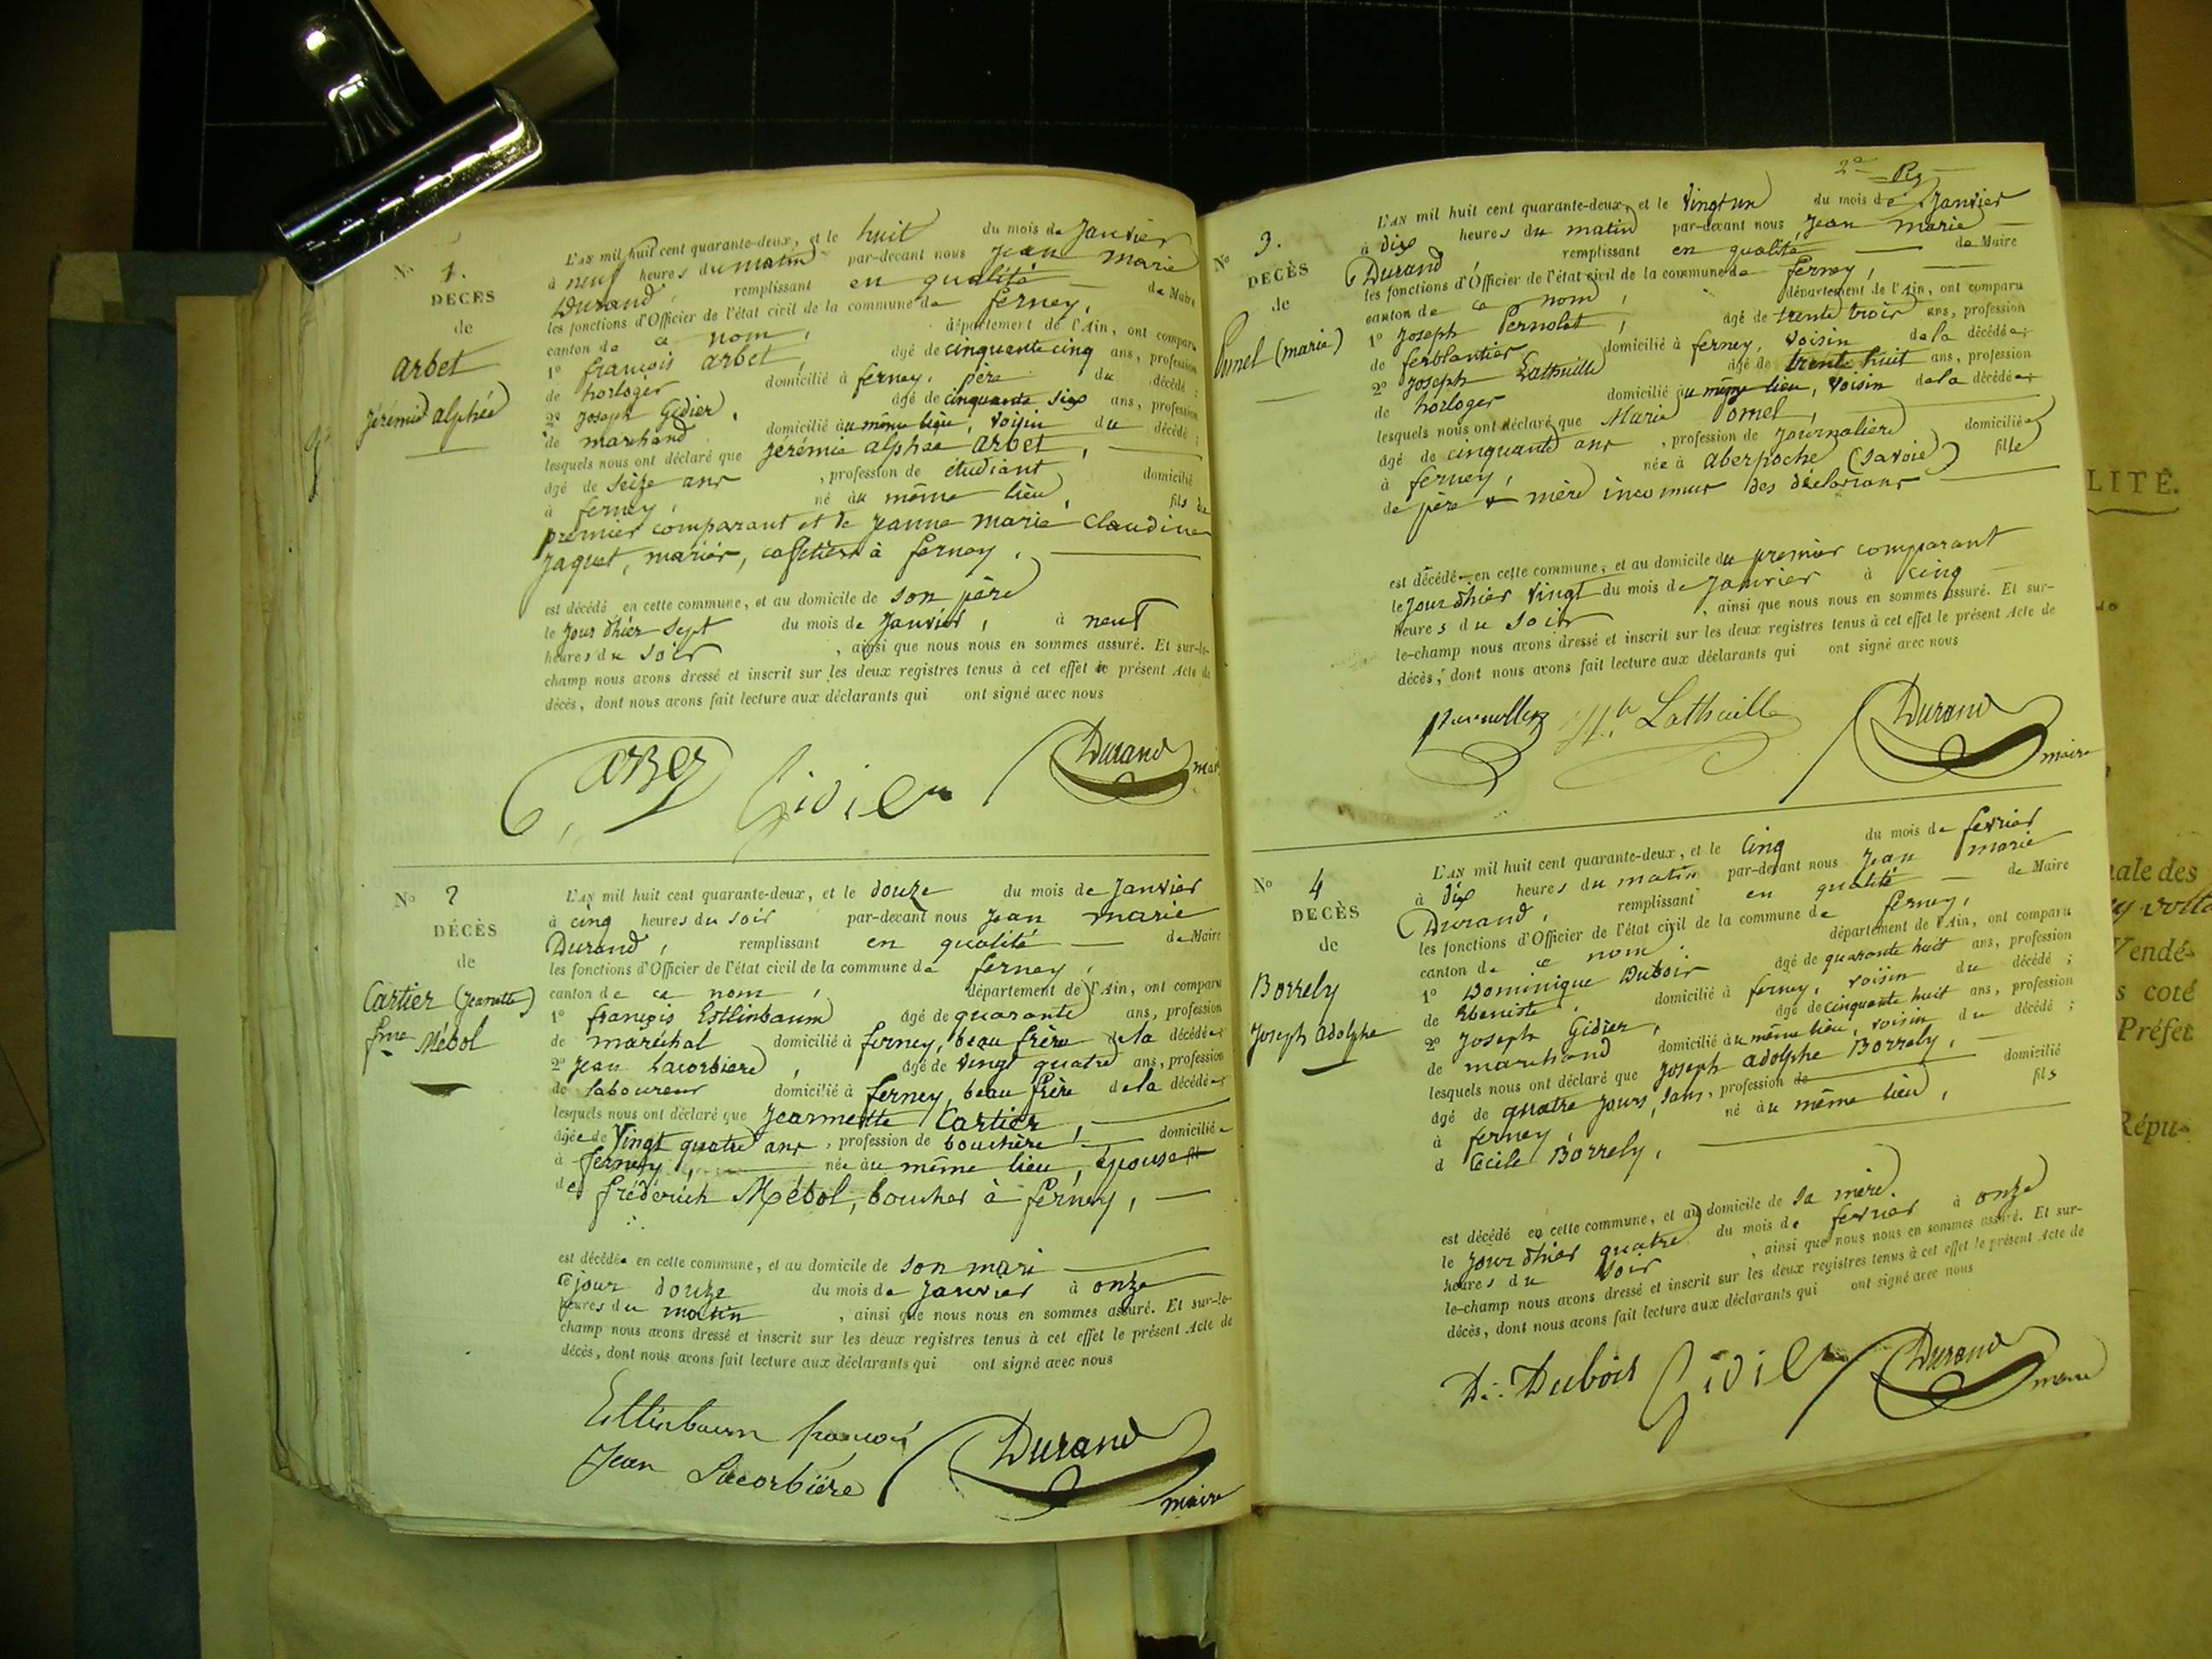 No 1.
DÉCÈS
de
Arbet
Jérémie alphée
L'AN mil huit cent quarante-deux, et le huit du mois de Janvier
à neuf heures du matin par-devant nous Jean marie
Durand, remplissant en qualité de Maire
les fonctions d'Officier de l'état civil de la commune de ferney,
canton de ce nom, département de l'Ain, ont comparu
1° françois arbet, âgé de cinquante cinq ans, profession
de horloger domicilié à ferney, père du décédé ;
2° Joseph Gidier, âgé de cinquante six ans, profession
de marchand domicilié au même lieu, voisin du décédé ;
lesquels nous ont déclaré que Jérémie alphée arbet,
âgé de seize ans, profession de étudiant domicilié
à ferney, né au même lieu, fils du
premier comparant et de Jeanne marie Claudine
Jaquet, mariés, à ferney.
est décédé en cette commune, et au domicile de son père
le jour d'hier sept du mois de Janvier, à neuf
heures du soir, ainsi que nous nous en sommes assuré. Et sur-le-
champ nous avons dressé et inscrit sur les deux registres tenus à cet effet le présent Acte de
décès, dont nous avons fait lecture aux déclarants qui ont signé avec nous
Gidier Durand
No 2
DÉCÈS
de
Cartier (Jeannette)
fme Mébol
L'AN mil huit cent quarante-deux, et le douze du mois de Janvier
à cinq heures du soir par-devant nous Jean marie
Durand, remplissant en qualité de Maire
les fonctions d'Officier de l'état civil de la commune de ferney,
canton de ce nom, département de l'Ain, ont comparu
1° françois Estlinbaum âgé de quarante ans, profession
de maréchal domicilié à ferney, beau frère de la décédée ;
2° Jean Lacorbiere, âgé de vingt quatre ans, profession
de laboureur domicilié à ferney, beau frère de la décédée ;
lesquels nous ont déclaré que Jeannette Cartier,
âgée de Vingt quatre ans, profession de bouchère, domiciliée
à ferney, née au même lieu, épouse
de frédérich Mébol, boucher à ferney,
est décédée en cette commune, et au domicile de son mari
ce jour douze du mois de Janvier à onze
heures du matin, ainsi que nous nous en sommes assuré. Et sur-le-
champ nous avons dressé et inscrit sur les deux registres tenus à cet effet le présent Acte de
décès, dont nous avons fait lecture aux déclarants qui ont signé avec nous
Estlinbaum françois
Jean Lacorbière Durand
maire
No 3.
DÉCÈS
de
(marie)
L'AN mil huit cent quarante-deux, et le Vingt un du mois de Janvier
à dix heures du matin par-devant nous Jean marie
Durand, remplissant en qualité de Maire
les fonctions d'Officier de l'état civil de la commune de ferney,
canton de ce nom, département de l'Ain, ont comparu
1° Joseph Pernolet, âgé de trente trois ans, profession
de ferblantier domicilié à ferney, voisin de la décédée ;
2° Joseph Lathuille âgé de trente huit ans, profession
de horloger domicilié au même lieu, voisin de la décédée ;
lesquels nous ont déclaré que Marie
âgé de cinquante ans, profession de Journalière domiciliée
à ferney, née à aberpoche (savoie) fille
de père & mère inconnus des déclarans
est décédée en cette commune, et au domicile du premier comparant
le jour d'hier Vingt du mois de Janvier à cinq
heures du soir, ainsi que nous nous en sommes assuré. Et sur-
le-champ nous avons dressé et inscrit sur les deux registres tenus à cet effet le présent Acte de
décès, dont nous avons fait lecture aux déclarants qui ont signé avec nous
Lathuille Durand
maire
No 4
DÉCÈS
de
Borrely
Joseph adolphe
L'AN mil huit cent quarante-deux, et le Cinq du mois de fevrier
à dix heures du matin par-devant nous Jean marie
Durand, remplissant en qualité de Maire
les fonctions d'Officier de l'état civil de la commune de ferney,
canton de ce nom, département de l'Ain, ont comparu
1° Dominique Dubois âgé de quarante huit ans, profession
de Ebeniste, domicilié à ferney, voisin du décédé ;
2° Joseph Gidier, âgé de cinquante huit ans, profession
de marchand domicilié au même lieu, voisin du décédé ;
lesquels nous ont déclaré que Joseph adolphe Borrely,
âgé de quatre jours, sans, profession de domicilié
à ferney, né au même lieu, fils
d Cécile Borrely.
est décédé en cette commune, et au domicile de sa mère.
le jour d'hier quatre du mois de fevrier à onze
heures du soir, ainsi que nous nous en sommes assuré. Et sur-
le-champ nous avons dressé et inscrit sur les deux registres tenus à cet effet le présent Acte de
décès, dont nous avons fait lecture aux déclarants qui ont signé avec nous
D. Dubois Gidier Durand
maire
LITÉ.
nale des
Vendé-
s coté
Préfet
Répu-